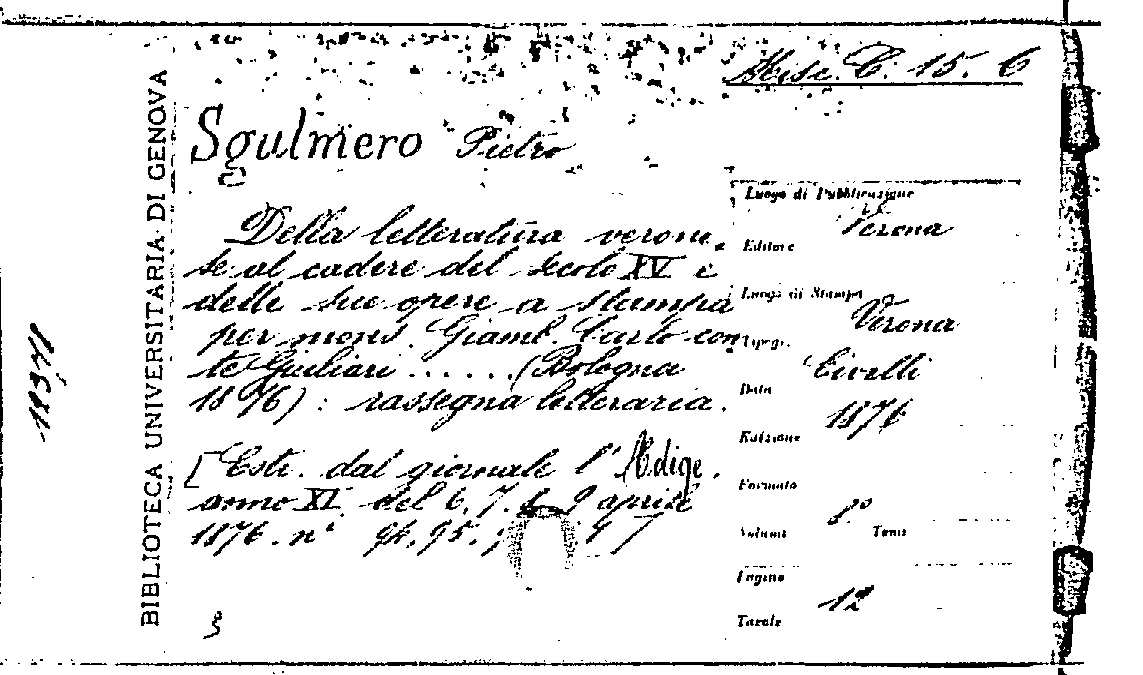 Misc. C. 15. 6
BIBLIOTECA UNIVERSITARIA DI GENOVA
Sgulmero Pietro
Della letteratura verone-
se al cadere del secolo XV e
delle sue opere a stampa
per mons. Giamb. Carlo con-
te Giuliari ......(Bologna
1876): rassegna letteraria.
[Estr. dal giornale l'Adige.
anno XI, del 6. 7. 9 aprile
1876. nⁱ 94, 95, 97
Luogo di Pubblicazione
Verona
Editore
Luogo di Stampa
Verona
Tipogr.
Civelli
Data
1876
Edizione
Formato
8º
Volumi Tomi
Pagine
12
Tavole